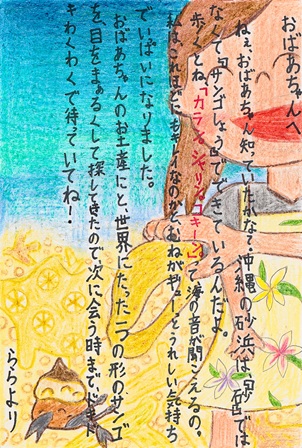 おばあちゃんへ
ねぇ、おばあちゃん知っていたかな?沖縄の砂浜は、「砂」では
なくて「サンゴしょう」でできているんだよ。
歩くとね、「カランシャリンコキーン」って海の音が聞こえるの。
私はこれほどにもキレイなのかと、むねがギューっとうれしい気持ち
でいっぱいになりました。
おばあちゃんのお土産にと、世界にたった一つの形のサンゴ
を、目をまぁるくして探してきたので、次に会う時までドキド
キわくわくで待っていてね!
ららより